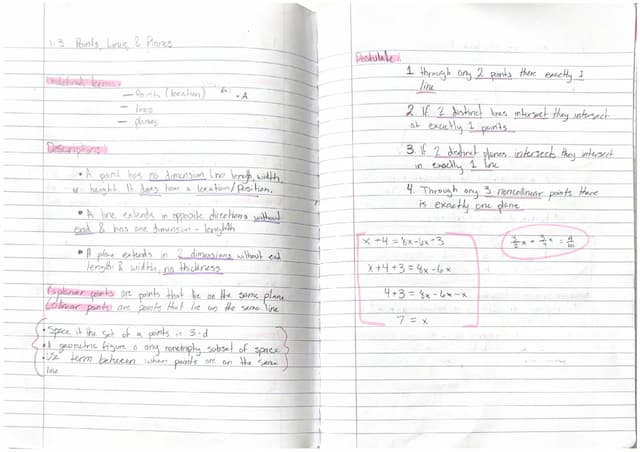 1.3 Points, Lines, & Planes
Undefined terms
— Points (location) ex: • A
— lines
— planes
Descriptions
• A point has no dimension (no length, width,
or height. It does have a location/position.
• A line extends in opposite directions without
end & has one dimension - length
• A plane extends in 2 dimensions without end
length & width, no thickness
Coplanar points are points that lie on the same plane
Colinear points are points that lie on the same line
• Space is the set of a points is 3-d
• A geometric figure is any nonempty subset of space
• Use term between when points are on the same
line
Postulate
1 through any 2 points there exactly 1
line
2. If 2 distinct lines intersect they intersect
at exactly 1 points.
3. If 2 distinct planes intersects they intersect
in exactly 1 line
4. Through any 3 noncolinear points there
is exactly one plane
x + 4 = 8x - 6x - 3
x + 4 + 3 = 8x - 6x
4 + 3 = 8x - 6x - x
7 = x